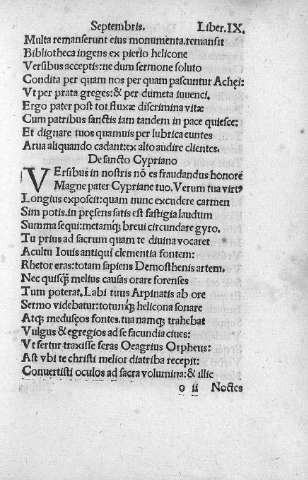 Septembris. Liber.IX.
Multa remanserunt eius monumenta.remansit
Bibliotheca ingens ex pierio helicone
Versibus acceptis:ne dum sermone soluto
Condita per quam nos per quam pascuntur Achei:
Vt per prata greges:& per dumeta iuuenci.
Ergo pater post tot fluxæ discrimina vitæ
Cum patribus sanctis iam tandem in pace quiesce:
Et dignare tuos quamuis per lubrica euntes
Arua aliquando cadant:ex alto audire clientes.
De sancto Cypriano
VErsibus in nostris nō es fraudandus honore
Magne pater Cypriane tuo. Verum tua virt⁹
Longius exposcit:quam nunc excudere carmen
Sim potis.in præsens satis est fastigia laudum
Summa sequi:metamq; breui circundare gyro.
Tu prius ad sacrum quam te diuina vocaret
Acultu Iouis antiqui clementia fontem:
Rhetor eras:totam sapiens Demosthenis artem.
Nec quisq̃ melius causas orare forenses
Tum poterat. Labi tuus Arpinatis ab ore
Sermo videbatur:totumq; helicona sonare
Atq; medusęos fontes.tua namq; trahebat
Vulgus & egregios ad se facundia ciues:
Vt fertur traxisse feras Oeagrius Orpheus:
Ast vbi te christi melior diatriba recepit:
Conuertisti oculos ad sacra volumina:& illic
o ii Noctes